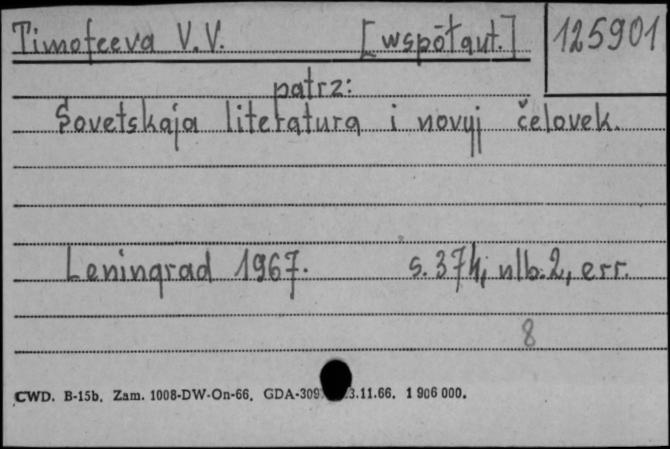 Timofeeva V.V. [współaut.] 125901
patrz:
Sovetskaja literatura i novyj čelovek.
Leningrad 1967. s. 374, nlb. 2, err.
8
CWD. B-15b. Zam. 1008-DW-On-66. .11.66. 1 906 000.